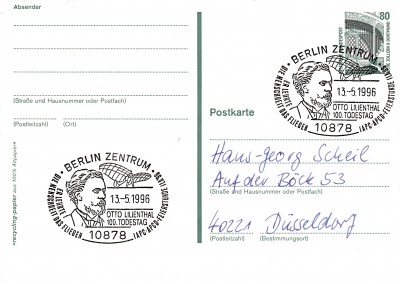 Absender
80
DEUTSCHE BUNDESPOST
BERLIN ZENTRUM
13.-5.1996
OTTO LILIENTHAL
100. TODESTAG
DIE MENSCHHEIT
ER LEHRTE
DAS FLIEGEN
10878
(Straße und Hausnummer oder Postfach)
(Postleitzahl) (Ort)
Postkarte
Hans-Georg Scheil
Auf der Böck 53
(Straße und Hausnummer oder Postfach)
40221 Düsseldorf
(Postleitzahl) (Bestimmungsort)
BERLIN ZENTRUM
13.-5.1996
OTTO LILIENTHAL
100. TODESTAG
DIE MENSCHHEIT
ER LEHRTE
DAS FLIEGEN
10878